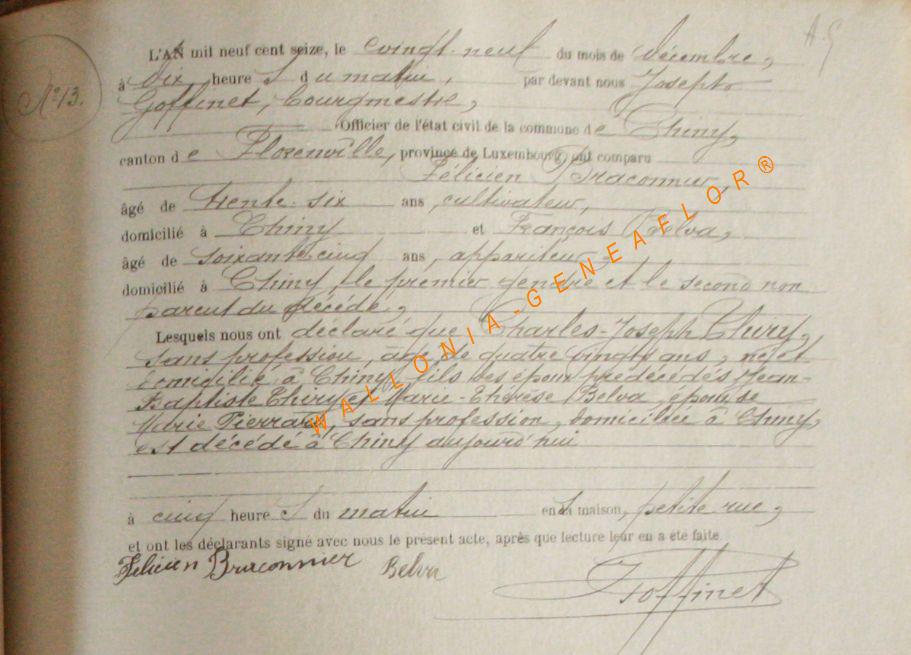 A.G
N° 13.
L'AN mil neuf cent seize, le vingt-neuf du mois de décembre,
à dix heures du matin, par devant nous Joseph
Goffinet, bourgmestre,
Officier de l'état civil de la commune de Chiny,
canton de Florenville, province de Luxembourg, ont comparu
Félicien Braconnier,
âgé de trente-six ans, cultivateur,
domicilié à Chiny et François Belva,
âgé de soixante cinq ans, appariteur,
domicilié à Chiny, le premier gendre et le second non
parent du décédé,
Lesquels nous ont déclaré que Charles-Joseph Thiry,
sans profession, âgé de quatre vingts ans, né et
domicilié à Chiny, fils des époux prédécédés Jean-
Baptiste Thiry et Marie-Thérèse Belva, époux de
Marie Pierrard, sans profession, domiciliée à Chiny,
est décédé à Chiny aujourd'hui
à cinq heures du matin en sa maison, petite rue,
et ont les déclarants signé avec nous le présent acte, après que lecture leur en a été faite.
Félicien Braconnier Belva Goffinet
WALLONIA-GENEAFLOR®